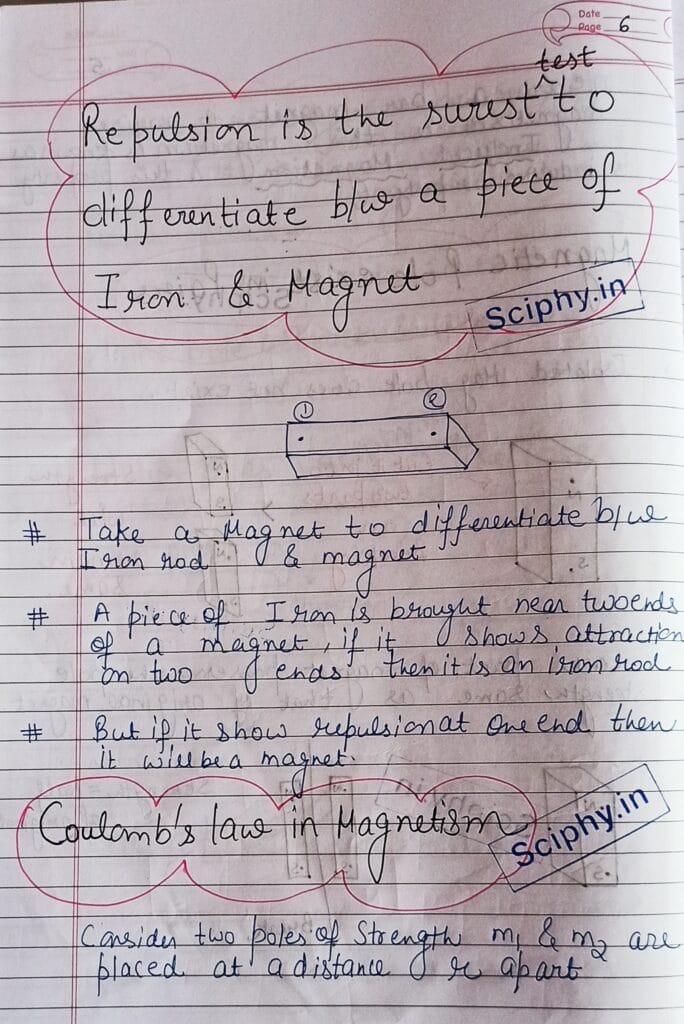 Date
Page 6
test
Repulsion is the surest ^ to
differentiate b/w a piece of
Iron & Magnet
Sciphy.in
① ②
# Take a Magnet to differentiate b/w
Iron rod & magnet
# A piece of Iron is brought near two ends
of a magnet, if it shows attraction
on two ends then it is an iron rod
# But if it show repulsion at one end then
it will be a magnet.
Coulomb's law in Magnetism
Sciphy.in
Consider two poles of Strength m1 & m2 are
placed at a distance r apart